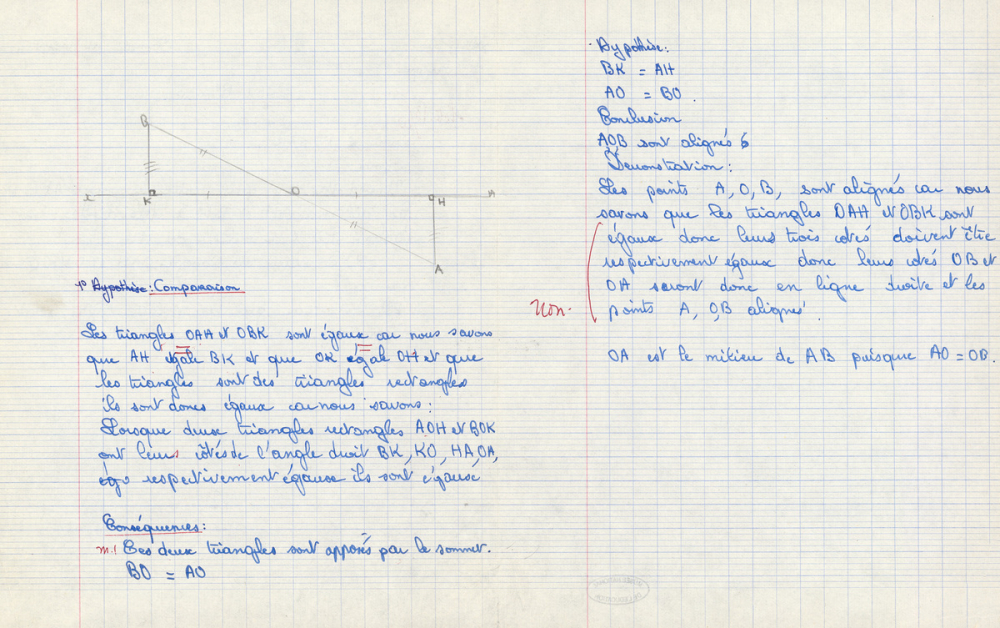 B
x K O H
A
1° Hypothèse: Comparaison
Les triangles OAH et OBK sont égaux car nous savons
que AH égale BK et que OK égal OH et que
les triangles sont des triangles rectangles
ils sont donc égaux car nous savons:
Lorsque deux triangles rectangles AOH et BOK
ont leurs côtés de l'angle droit BK, KO, HA, OH,
respectivement égaux ils sont égaux
Conséquences:
m.! Ces deux triangles sont opposés par le sommet.
BO = AO
Hypothèse:
BK = AH
AO = BO.
Conclusion
AOB sont alignés
Démonstration:
Les points A, O, B, sont alignés car nous
savons que les triangles OAH et OBK sont
égaux donc leurs trois cotés doivent être
respectivement égaux donc leurs cotés OB et
OA seront donc en ligne droite et les
Non. points A, O,B alignés.
OA est le milieu de AB puisque AO = OB.